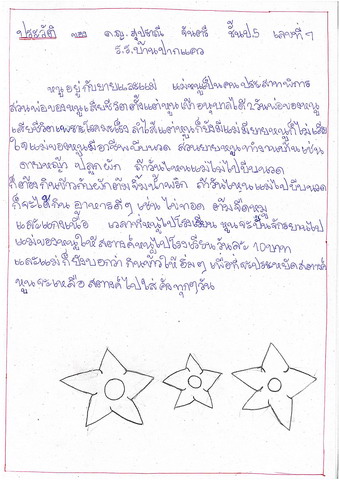 ประวัติ ของ ด.ญ. สุปราณี จันตรี ชั้น ป.5 เลขที่ 7
ร.ร.บ้านปากแคว
หนูอยู่กับยายและแม่ แม่หนูเป็นคนประสาทพิการ
ส่วนพ่อของหนูเสียชีวิตตั้งแต่หนูเข้าอนุบาลได้ 2 วันพ่อของหนู
เสียชีวิตเพราะโรคมะเร็งลำไส้แต่หนูก็ยังมีแม่มียายหนูก็ไม่เสีย
ใจแม่ของหนูมีอาชีพบีบนวด ส่วนยายหนูทำงานอื่นเช่น
ดายหญ้า ปลูกผัก ถ้าวันไหนแม่ไม่ไปบีบนวด
ก็ต้องกินข้าวกับผักต้มจิ้มน้ำพริก ถ้าวันไหนแม่ไปบีบนวด
ก็จะได้กิน อาหารดีๆ เช่น ไก่ทอด ต้มจืดหมู
และแกงเนื้อ เวลาที่หนูไปโรงเรียน หนูจะปั่นจักรยานไป
แม่ของหนูให้ สตางค์หนูไปโรงเรียนวันละ 10 บาท
และแม่ก็บอกว่า กินข้าวให้อิ่มๆ เพื่อที่จะประหยัดสตางค์
หนูจะเหลือ สตางค์ไปใส่ ทุกๆวัน